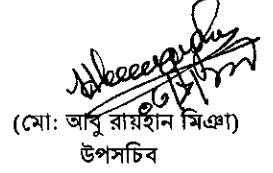 (মো: আবু রায়হান মিঞা)
উপসচিব